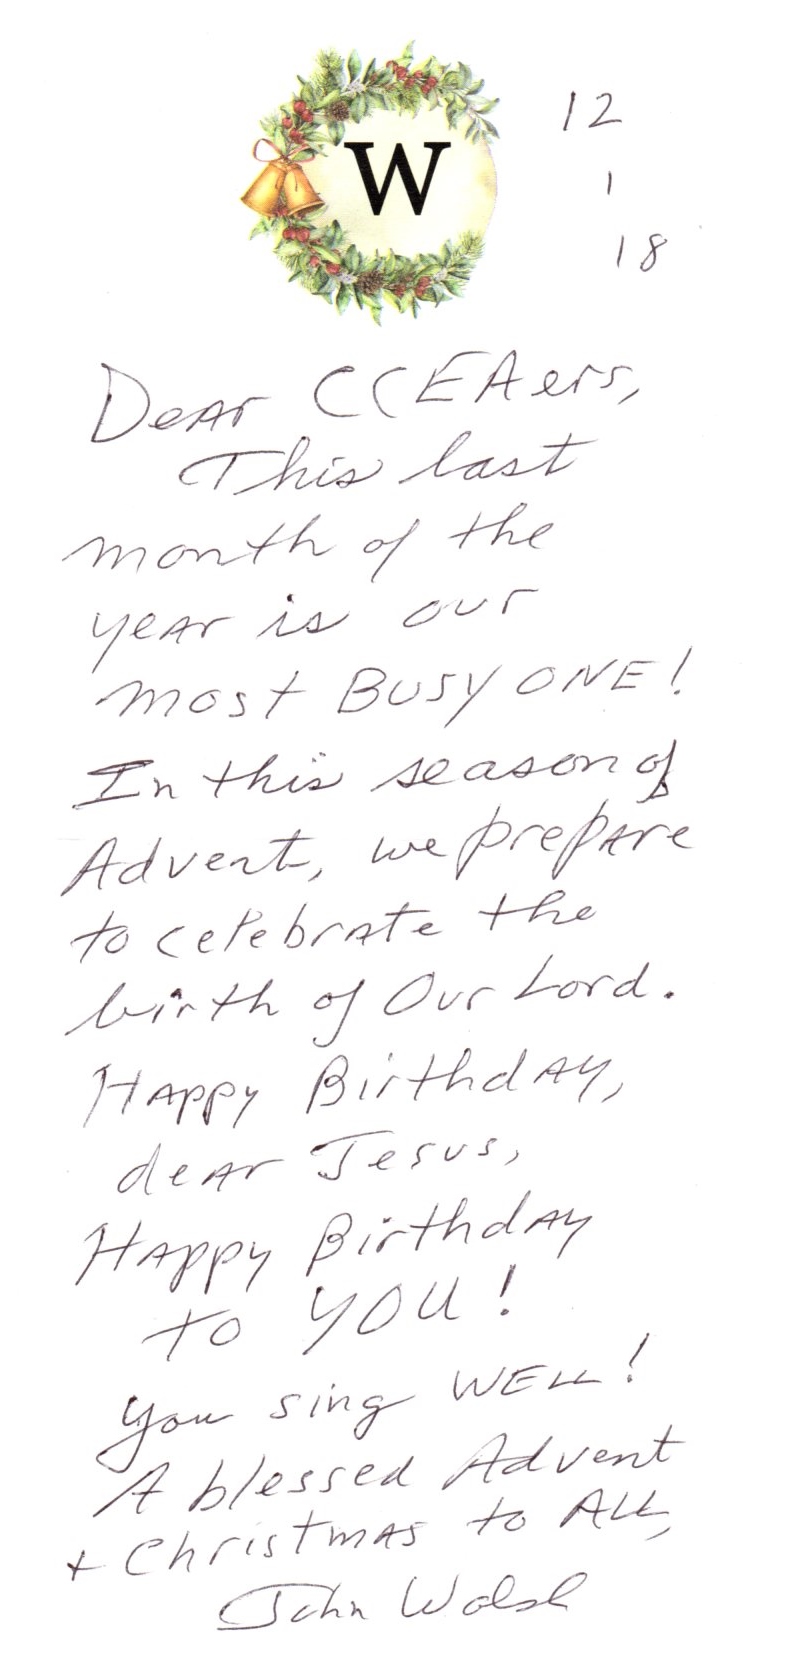 W
12
1
18
Dear CCEAers,
This last
month of the
year is our
most BUSY ONE!
In this season of
Advent, we prepare
to celebrate the
birth of Our Lord.
Happy Birthday,
dear Jesus,
Happy Birthday
to YOU!
You sing WELL!
A blessed Advent
+ Christmas to ALL,
John Walsh